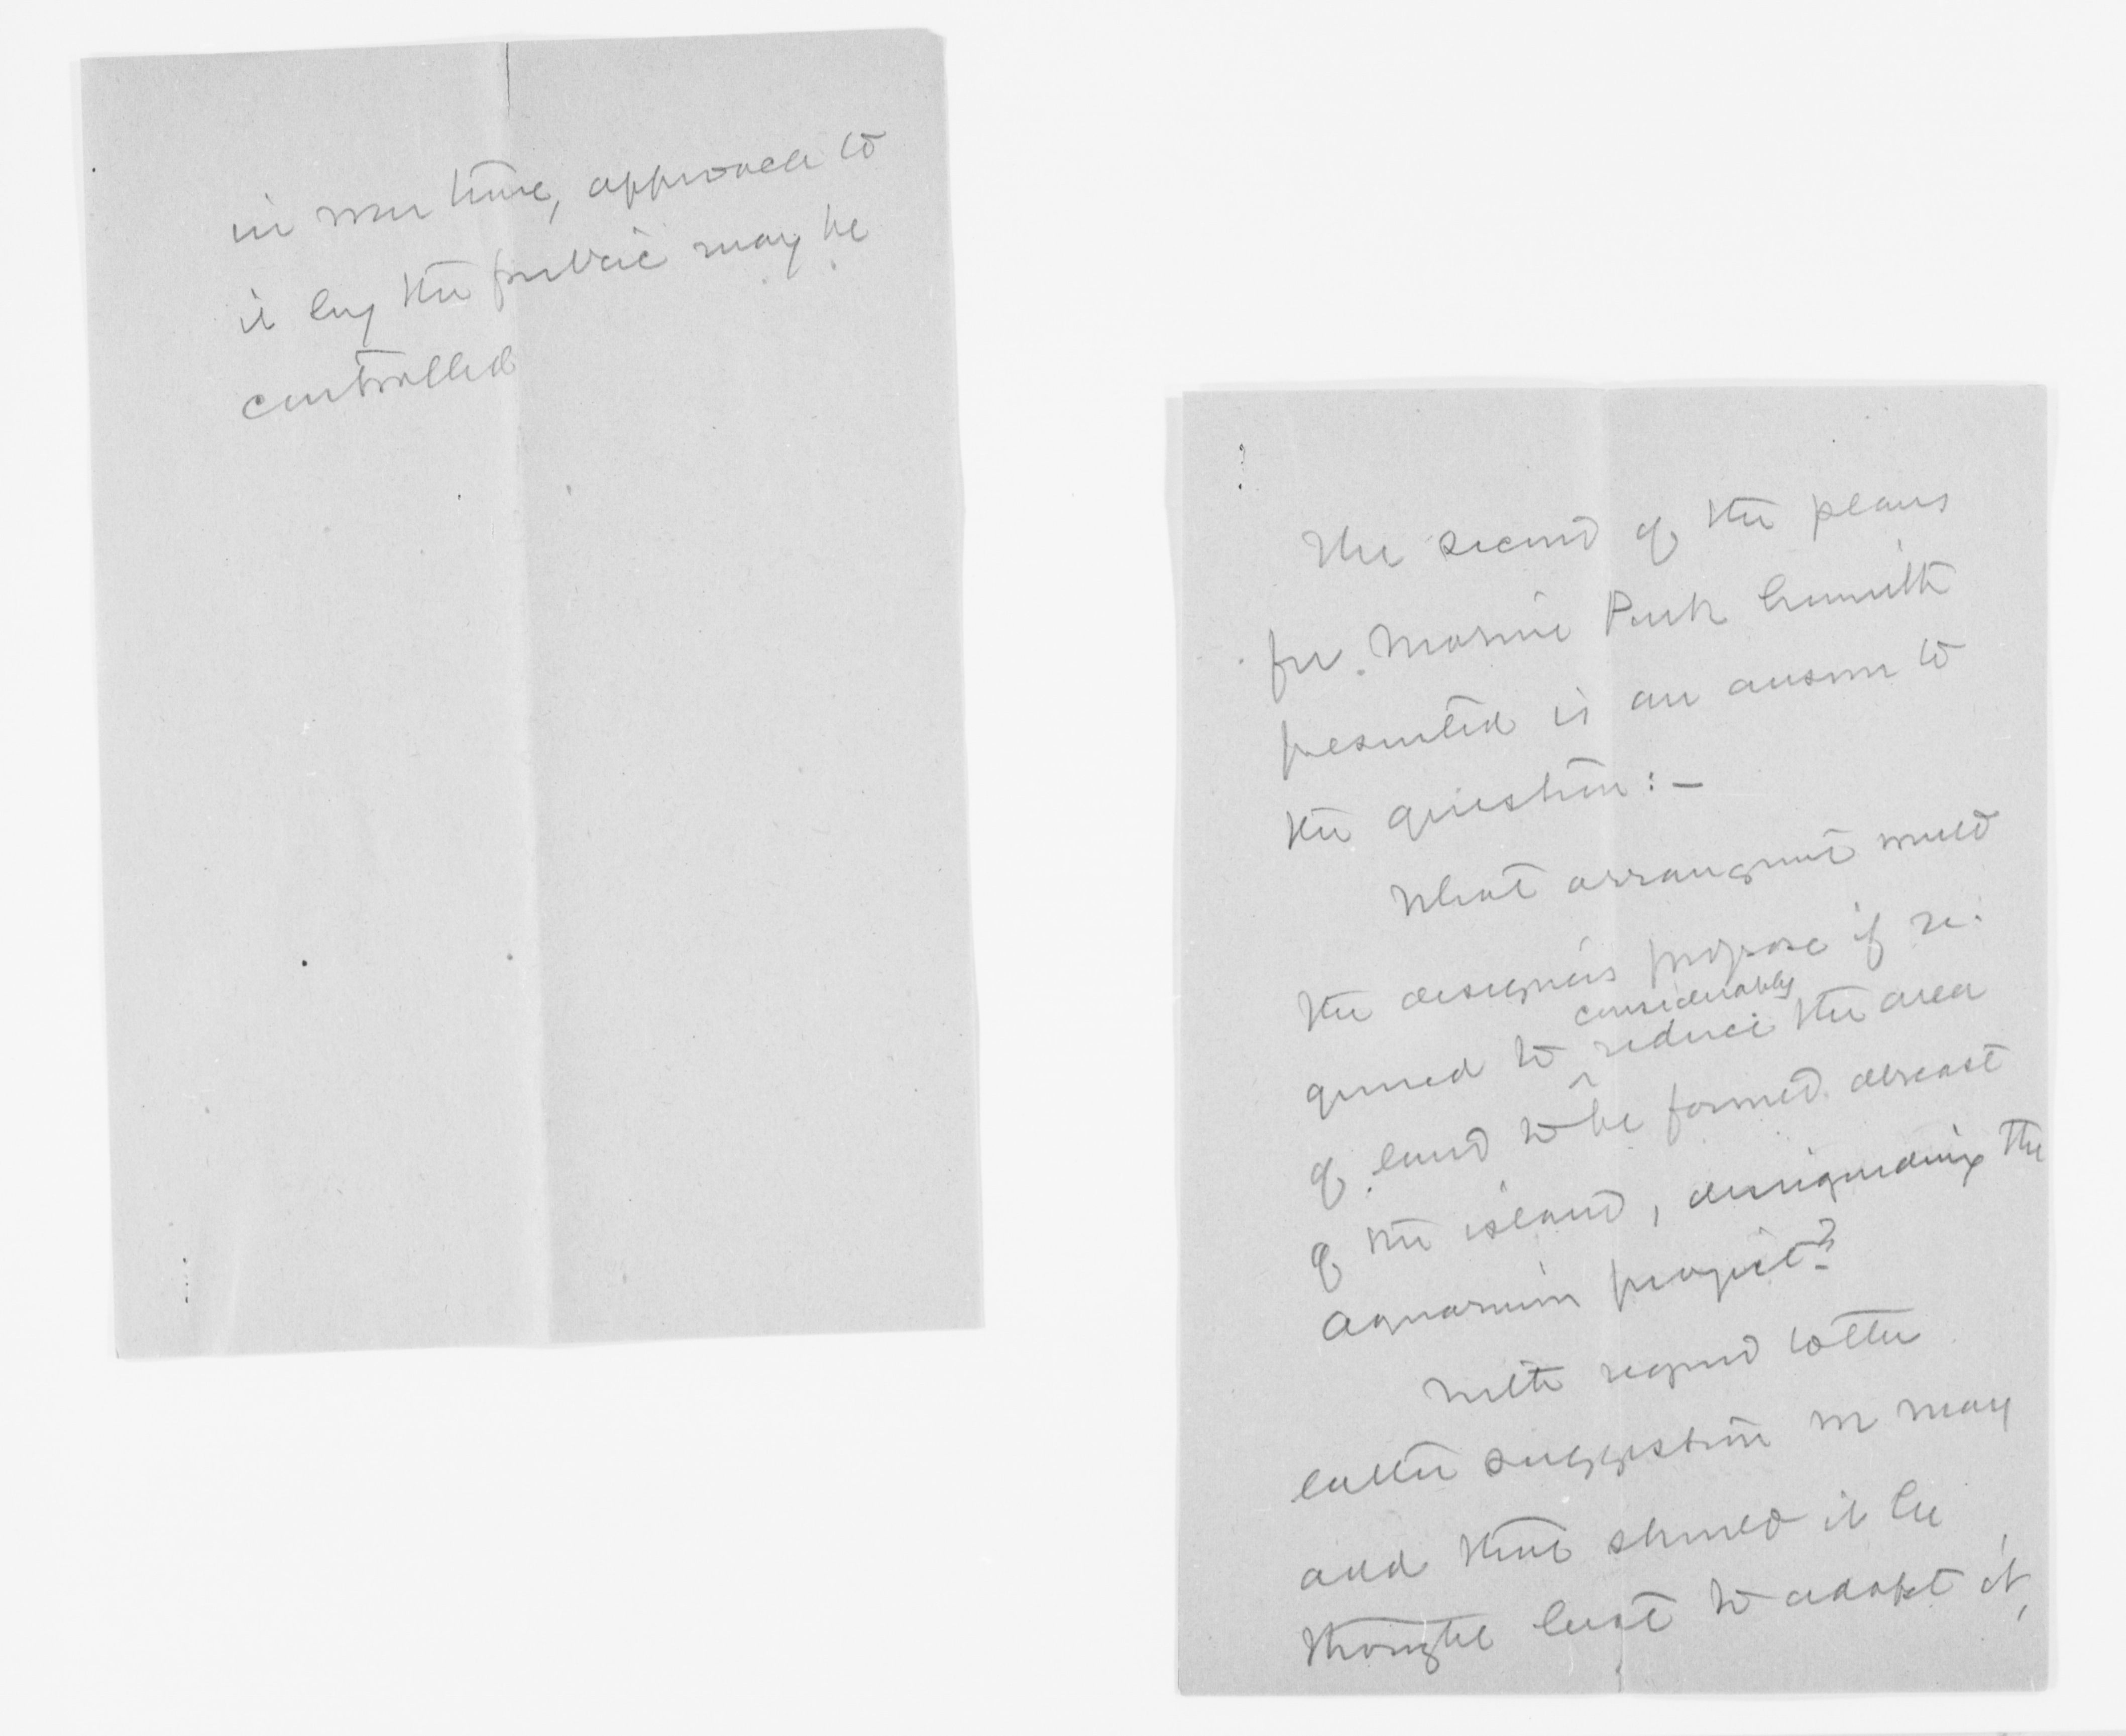 in war time, approach to
it by the public may be
controlled
The second of the plans
for Marine Park herewith
presented is an answer to
the question:—
What arrangement would
the designers propose if re-
considerably
quired to reduce the area
of land to be formed abreast
of the island, disregarding the
Aquarium project?
With regard to the
latter suggestion we may
add that should it be
thought best to adopt it,